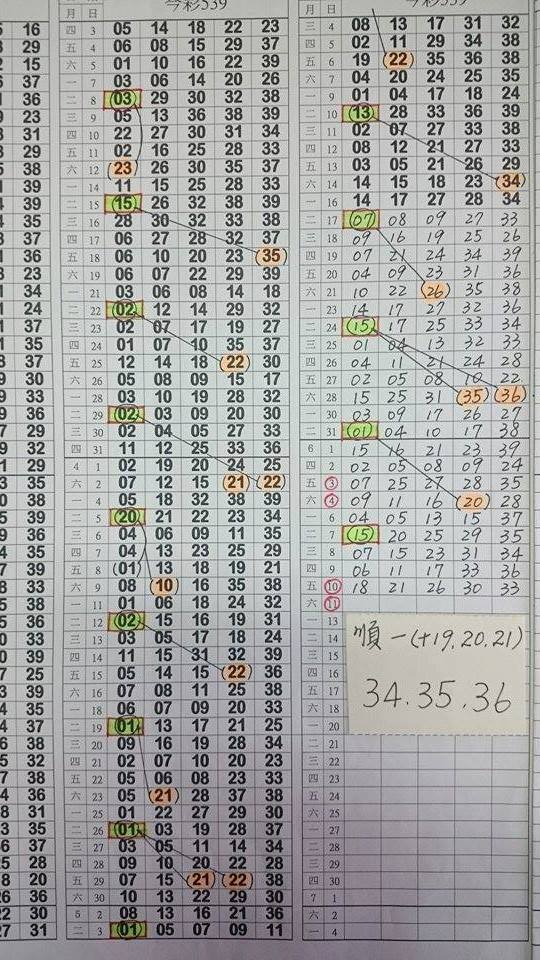 16
29
15
37
36
23
31
29
38
39
39
35
37
36
23
34
24
37
35
37
30
33
36
29
32
29
35
38
39
36
35
39
33
38
36
33
39
25
39
35
37
38
32
38
36
31
35
28
20
36
30
31
月 日 今彩539
四 3 05 14 18 22 23
五 4 06 08 15 29 37
六 5 01 10 16 22 39
一 7 03 06 14 20 26
二 8 (03) 29 30 32 38
三 9 05 13 36 38 39
四 10 22 27 30 31 34
五 11 02 16 25 28 33
六 12 (23) 26 30 35 37
一 14 11 15 25 28 33
二 15 (15) 26 32 38 39
三 16 28 30 32 33 38
四 17 06 27 28 32 37
五 18 06 10 20 23 (35)
六 19 06 07 22 29 39
一 21 03 06 08 14 18
二 22 (02) 12 14 29 32
三 23 02 07 17 19 27
四 24 01 07 10 35 37
五 25 12 14 18 (22) 30
六 26 05 08 09 15 17
一 28 03 10 19 28 32
二 29 (02) 03 09 20 30
三 30 02 04 05 27 33
四 31 11 12 25 33 36
4 1 02 19 20 24 25
六 2 07 12 15 (21) (22)
一 4 05 18 32 38 39
二 5 (20) 21 22 23 34
三 6 04 06 09 11 35
四 7 04 13 23 25 29
五 8 (01) 13 18 19 21
六 9 08 (10) 16 35 38
一 11 01 06 18 24 32
二 12 (02) 15 16 19 31
三 13 03 05 17 18 24
四 14 11 15 31 32 39
五 15 05 14 15 (22) 36
六 16 07 08 11 25 38
一 18 06 07 09 20 33
二 19 (01) 13 17 21 25
三 20 09 16 19 28 34
四 21 02 07 10 20 23
五 22 05 06 08 23 33
六 23 05 (21) 28 37 38
一 25 01 22 27 29 30
二 26 (01) 03 19 28 37
三 27 03 05 11 14 34
四 28 09 10 20 22 28
五 29 07 15 (21) (22) 38
六 30 10 13 22 29 30
5 2 08 13 16 21 36
二 3 (01) 05 07 09 11
月 日 今彩539
三 4 08 13 17 31 32
四 5 02 11 29 34 38
五 6 19 (22) 35 36 38
六 7 04 20 24 25 35
一 9 01 04 17 18 24
二 10 (13) 28 33 36 39
三 11 02 07 27 33 38
四 12 08 12 21 27 33
五 13 03 05 21 26 29
六 14 14 15 18 23 (34)
一 16 14 17 27 28 34
二 17 (07) 08 09 27 33
三 18 09 16 19 25 26
四 19 07 21 24 34 39
五 20 04 09 23 31 36
六 21 10 22 (26) 35 38
一 23 14 17 27 32 36
二 24 (15) 17 25 33 34
三 25 01 04 13 32 33
四 26 04 11 21 24 28
五 27 02 05 08 10 22
六 28 15 25 31 (35) (36)
一 30 03 09 17 26 27
二 31 (01) 04 10 17 38
6 1 15 16 21 23 39
四 2 02 05 08 09 24
五 3 07 25 27 28 35
六 4 09 11 16 (20) 28
一 6 04 05 13 15 37
二 7 (15) 20 25 29 35
三 8 07 15 23 31 34
四 9 06 11 17 33 36
五 10 18 21 26 30 33
六 11
一 13
二 14
三 15
四 16
五 17
六 18
一 20
二 21
三 22
四 23
五 24
六 25
一 27
二 28
三 29
四 30
7 1
六 2
一 4
順一(+19.20.21)
34.35.36